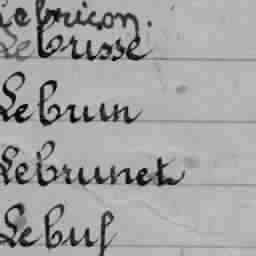 Lebriçon.
Lebrisse
Lebrun
Lebrunet
Lebuf